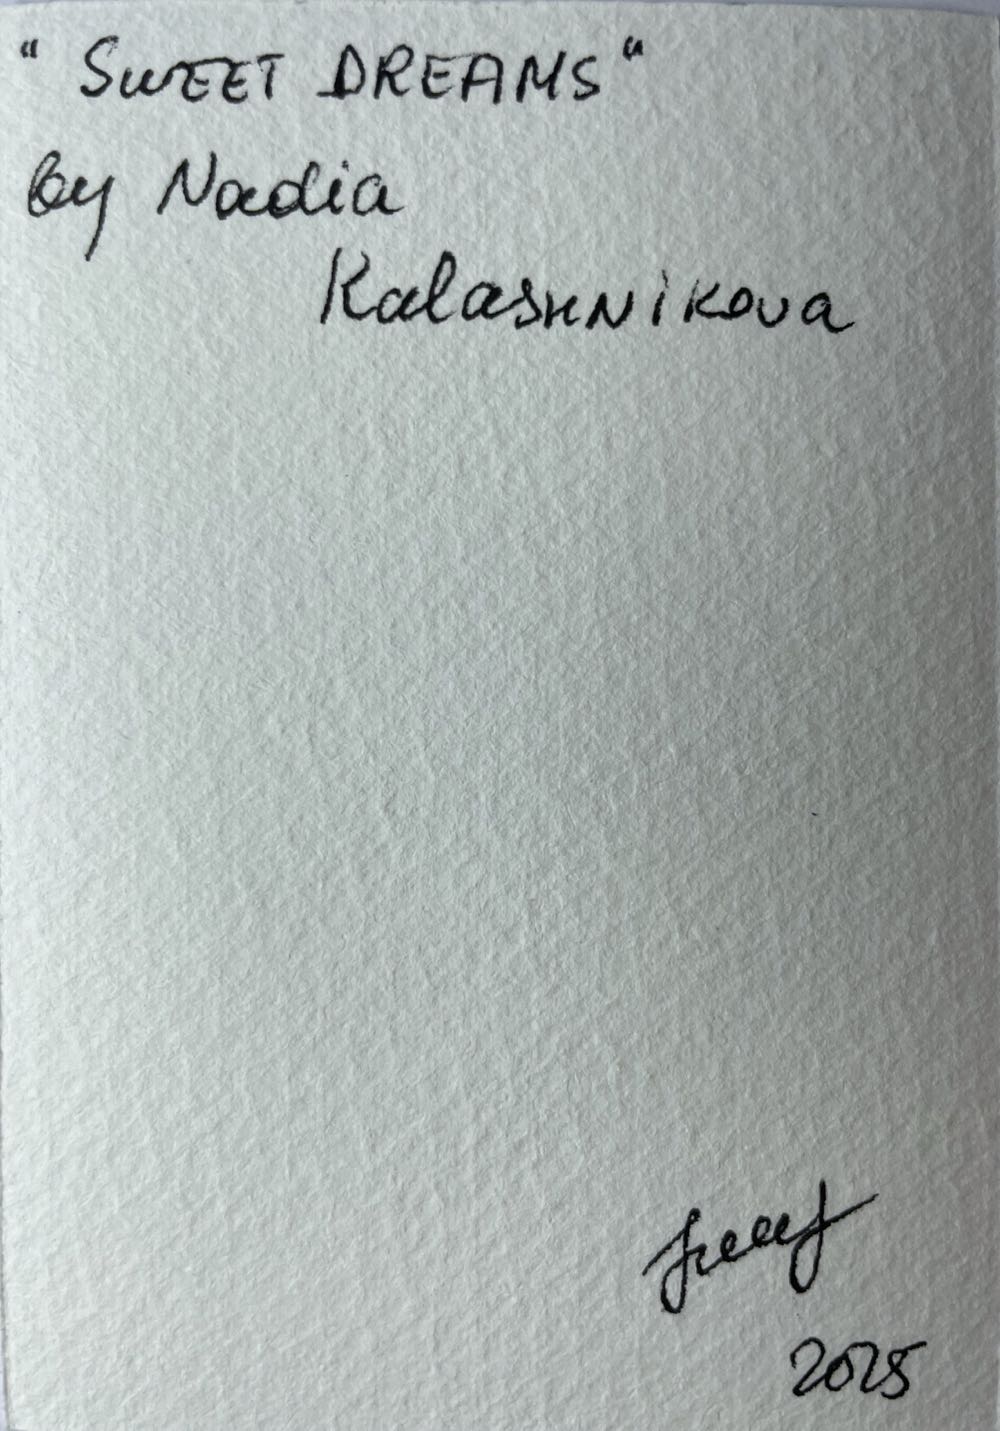 "SWEET DREAMS"
by Nadia
Kalashnikova
2025